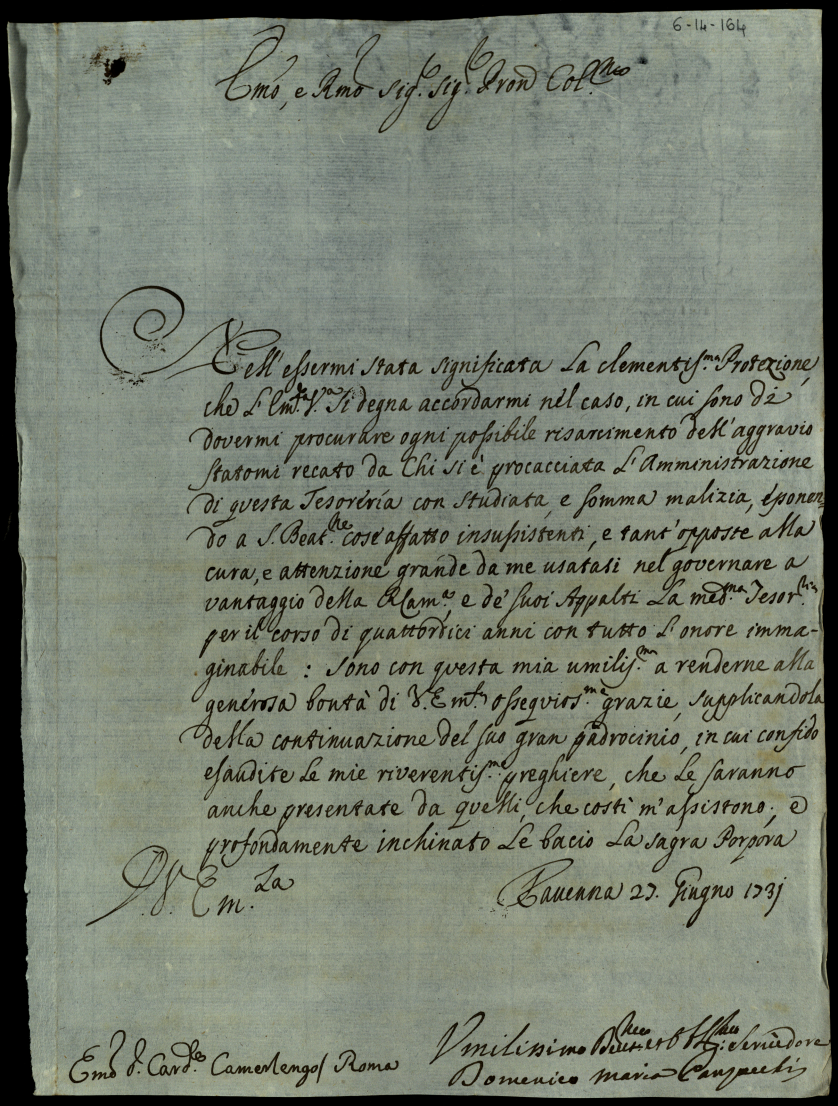 6-14-164
Emo, e Rmo Sig.re Sig.re Pron Col.mo
Nell'essermi stata significata La clementis.ma Protezione,
che L'Em.za V.ra si degna accordarmi nel caso, in cui sono di
dovermi procurare ogni possibile risarcimento dell'aggravio
statomi recato da Chi si è procacciata L'Amministrazione
di questa Tesoreria con studiata, e somma malizia, esponen-
do a S. Beat.ne cose affatto insussistenti, e tant'opposte alla
cura, e attenzione grande da me usatasi nel governare a
vantaggio della R. Cam.a, e de' suoi Appalti La med.ma Tesor.ria
per il corso di quattordici anni con tutto L'onore imma-
ginabile : sono con questa mia umilis.ma a renderne alla
generosa bontà di V. Em.za ossequios.me grazie, supplicandola
della continuazione del suo gran padrocinio, in cui confido
esaudite Le mie riverentis.me preghiere, che Le saranno
anche presentate da quelli, che costì m'assistono; e
profondamente inchinato Le bacio La sagra Porpora
D. V. Em.za
Ravenna 27. Giugno 1731
Emo S. Card.e Camerlengo / Roma
Umilissimo Devot.mo et Obl.mo Servidore
Domenico Maria